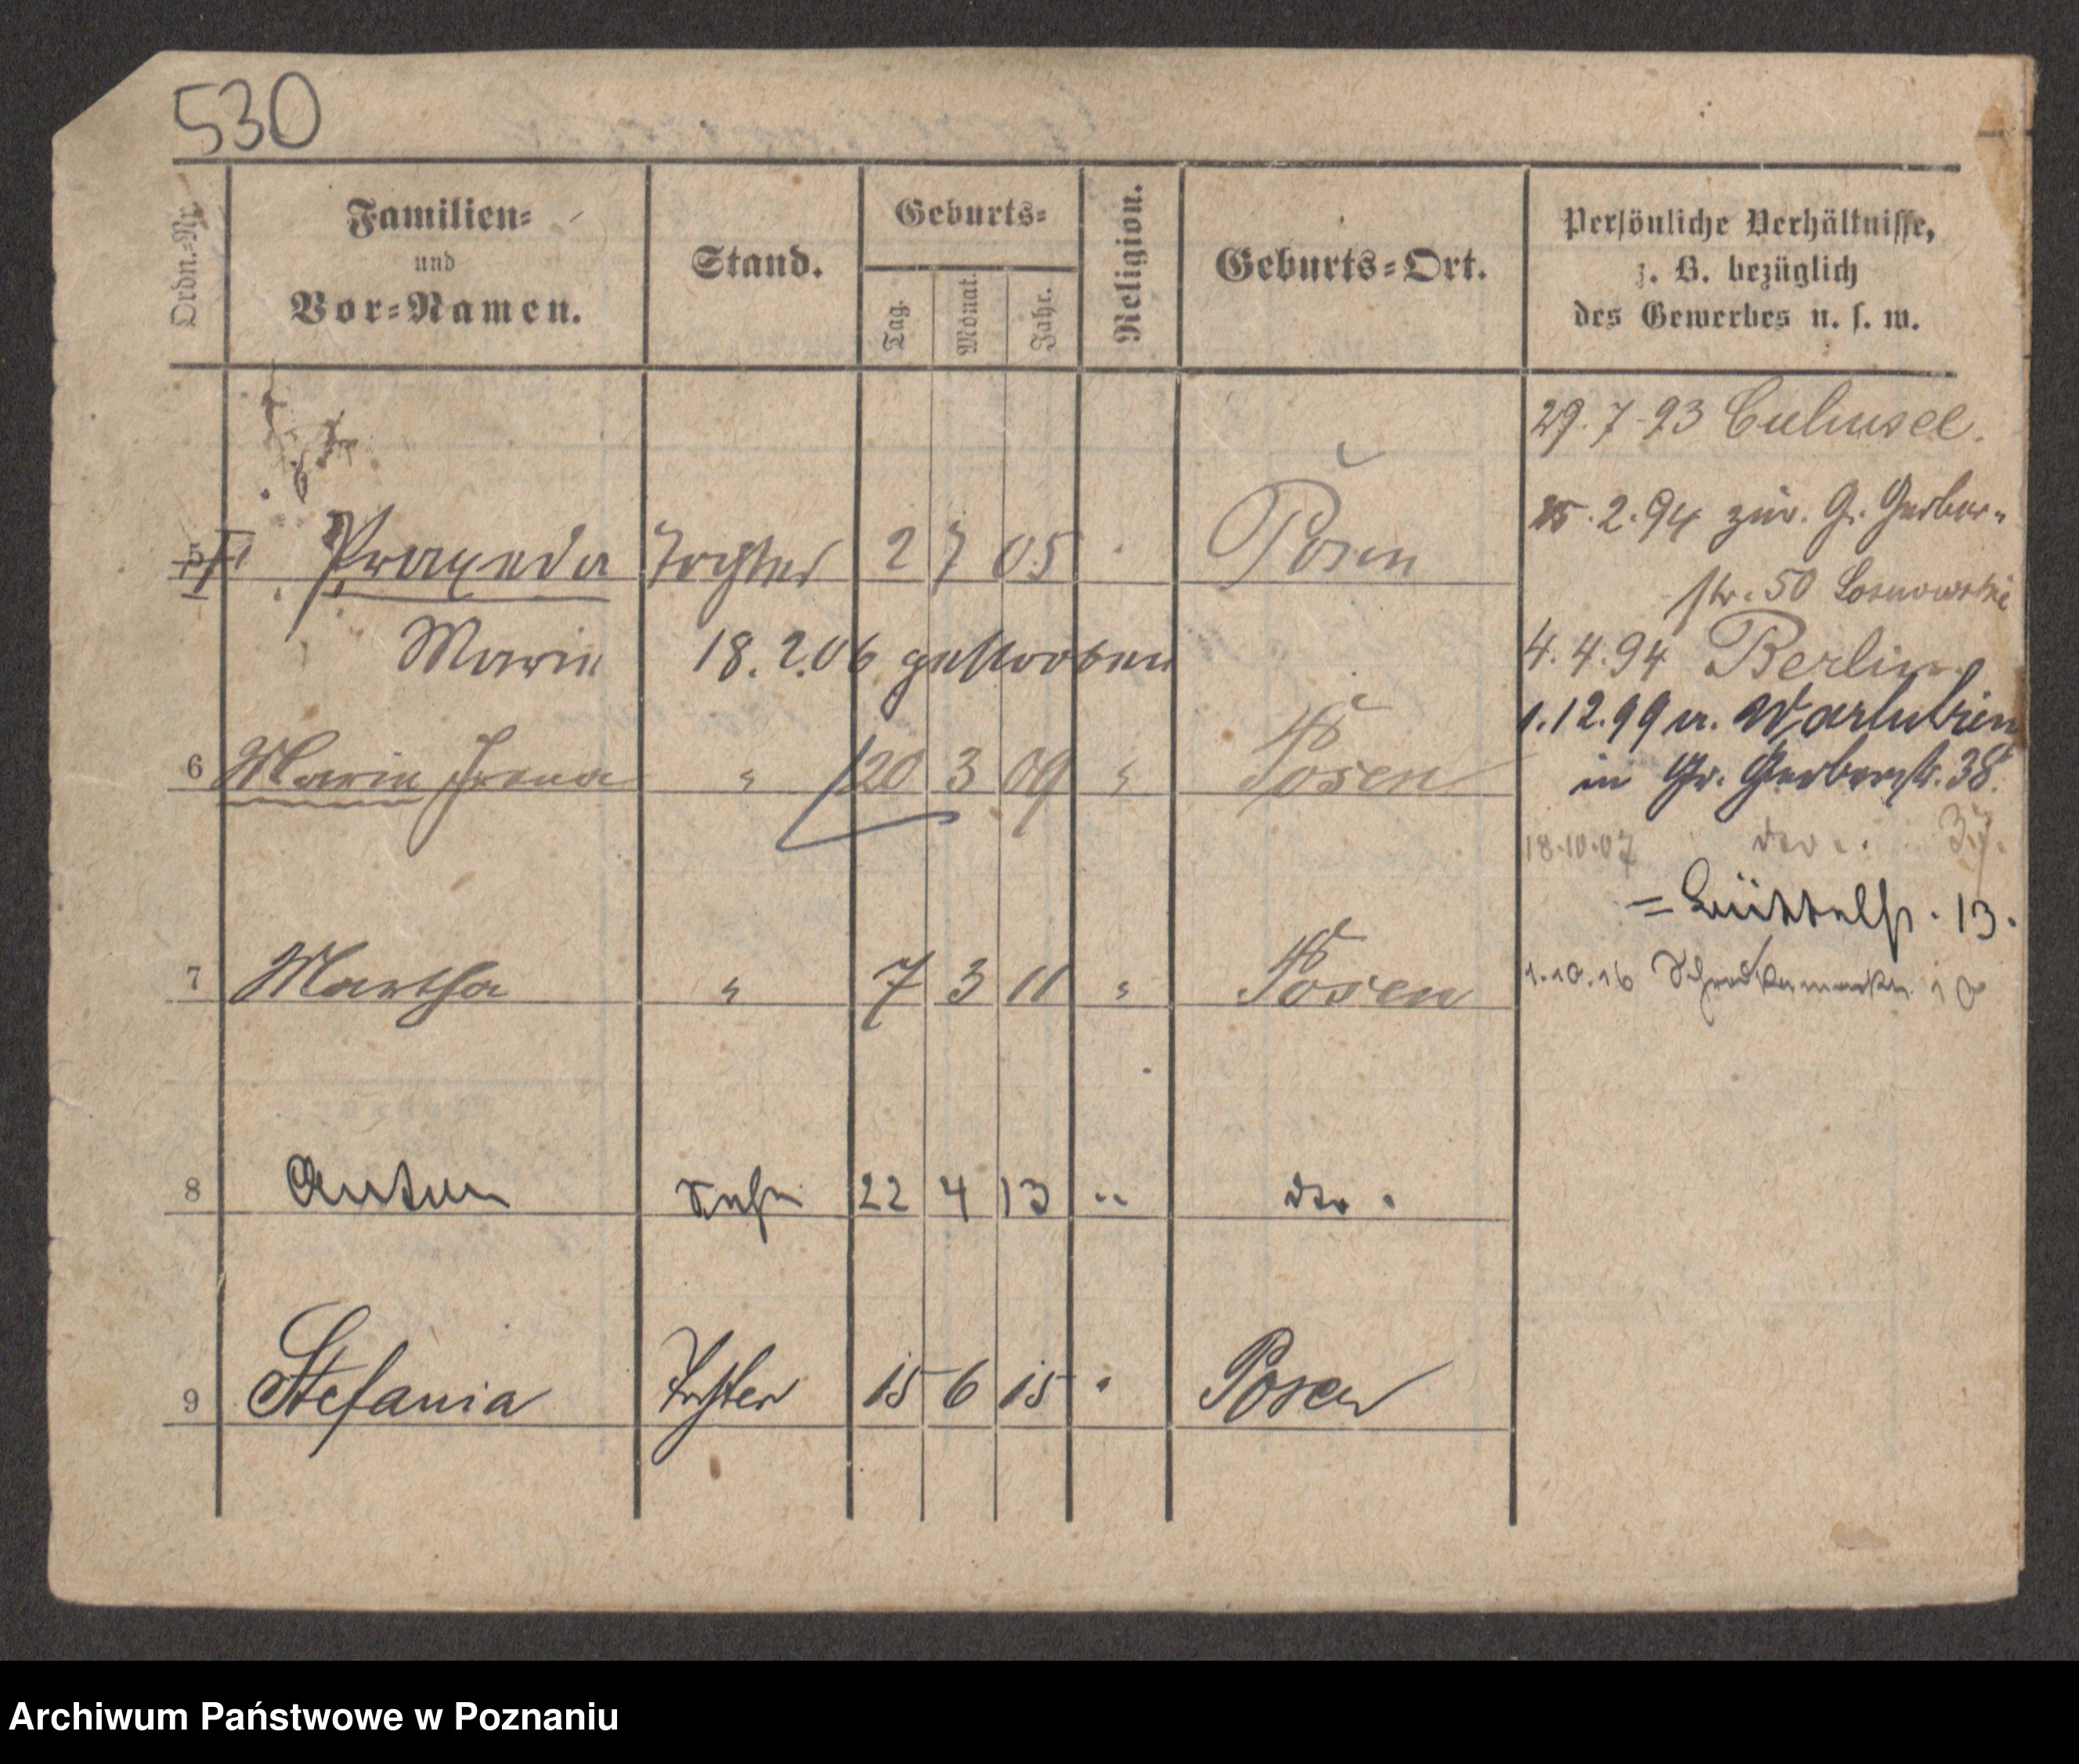 530
Ordn.-Nr.
Familien-
und
Vor-Namen.
Stand.
Geburts-
Tag.
Monat.
Jahr.
Religion.
Geburts-Ort.
Persönliche Verhältnisse,
z. B. bezüglich
des Gewerbes u. s. w.
29.7.93
15.2.94 zur. Gr. Gerber-
str. 50
Praxeda Tochter 2 7 05 Posen
Marie 18.2.06 gestorben
4.4.94 Berlin
1.12.99 a. Wartubien
in Gr. Gerberstr. 38.
6 Marie Irena " 20 3 09 " Posen
18.10.07 dto. 37.
= Büttelstr. 13.
7 Martha " 7 3 11 " Posen
1.10.16 10
8 Anton Sohn 22 4 13 " dto.
9 Stefania Tochter 15 6 15 " Posen
Archiwum Państwowe w Poznaniu